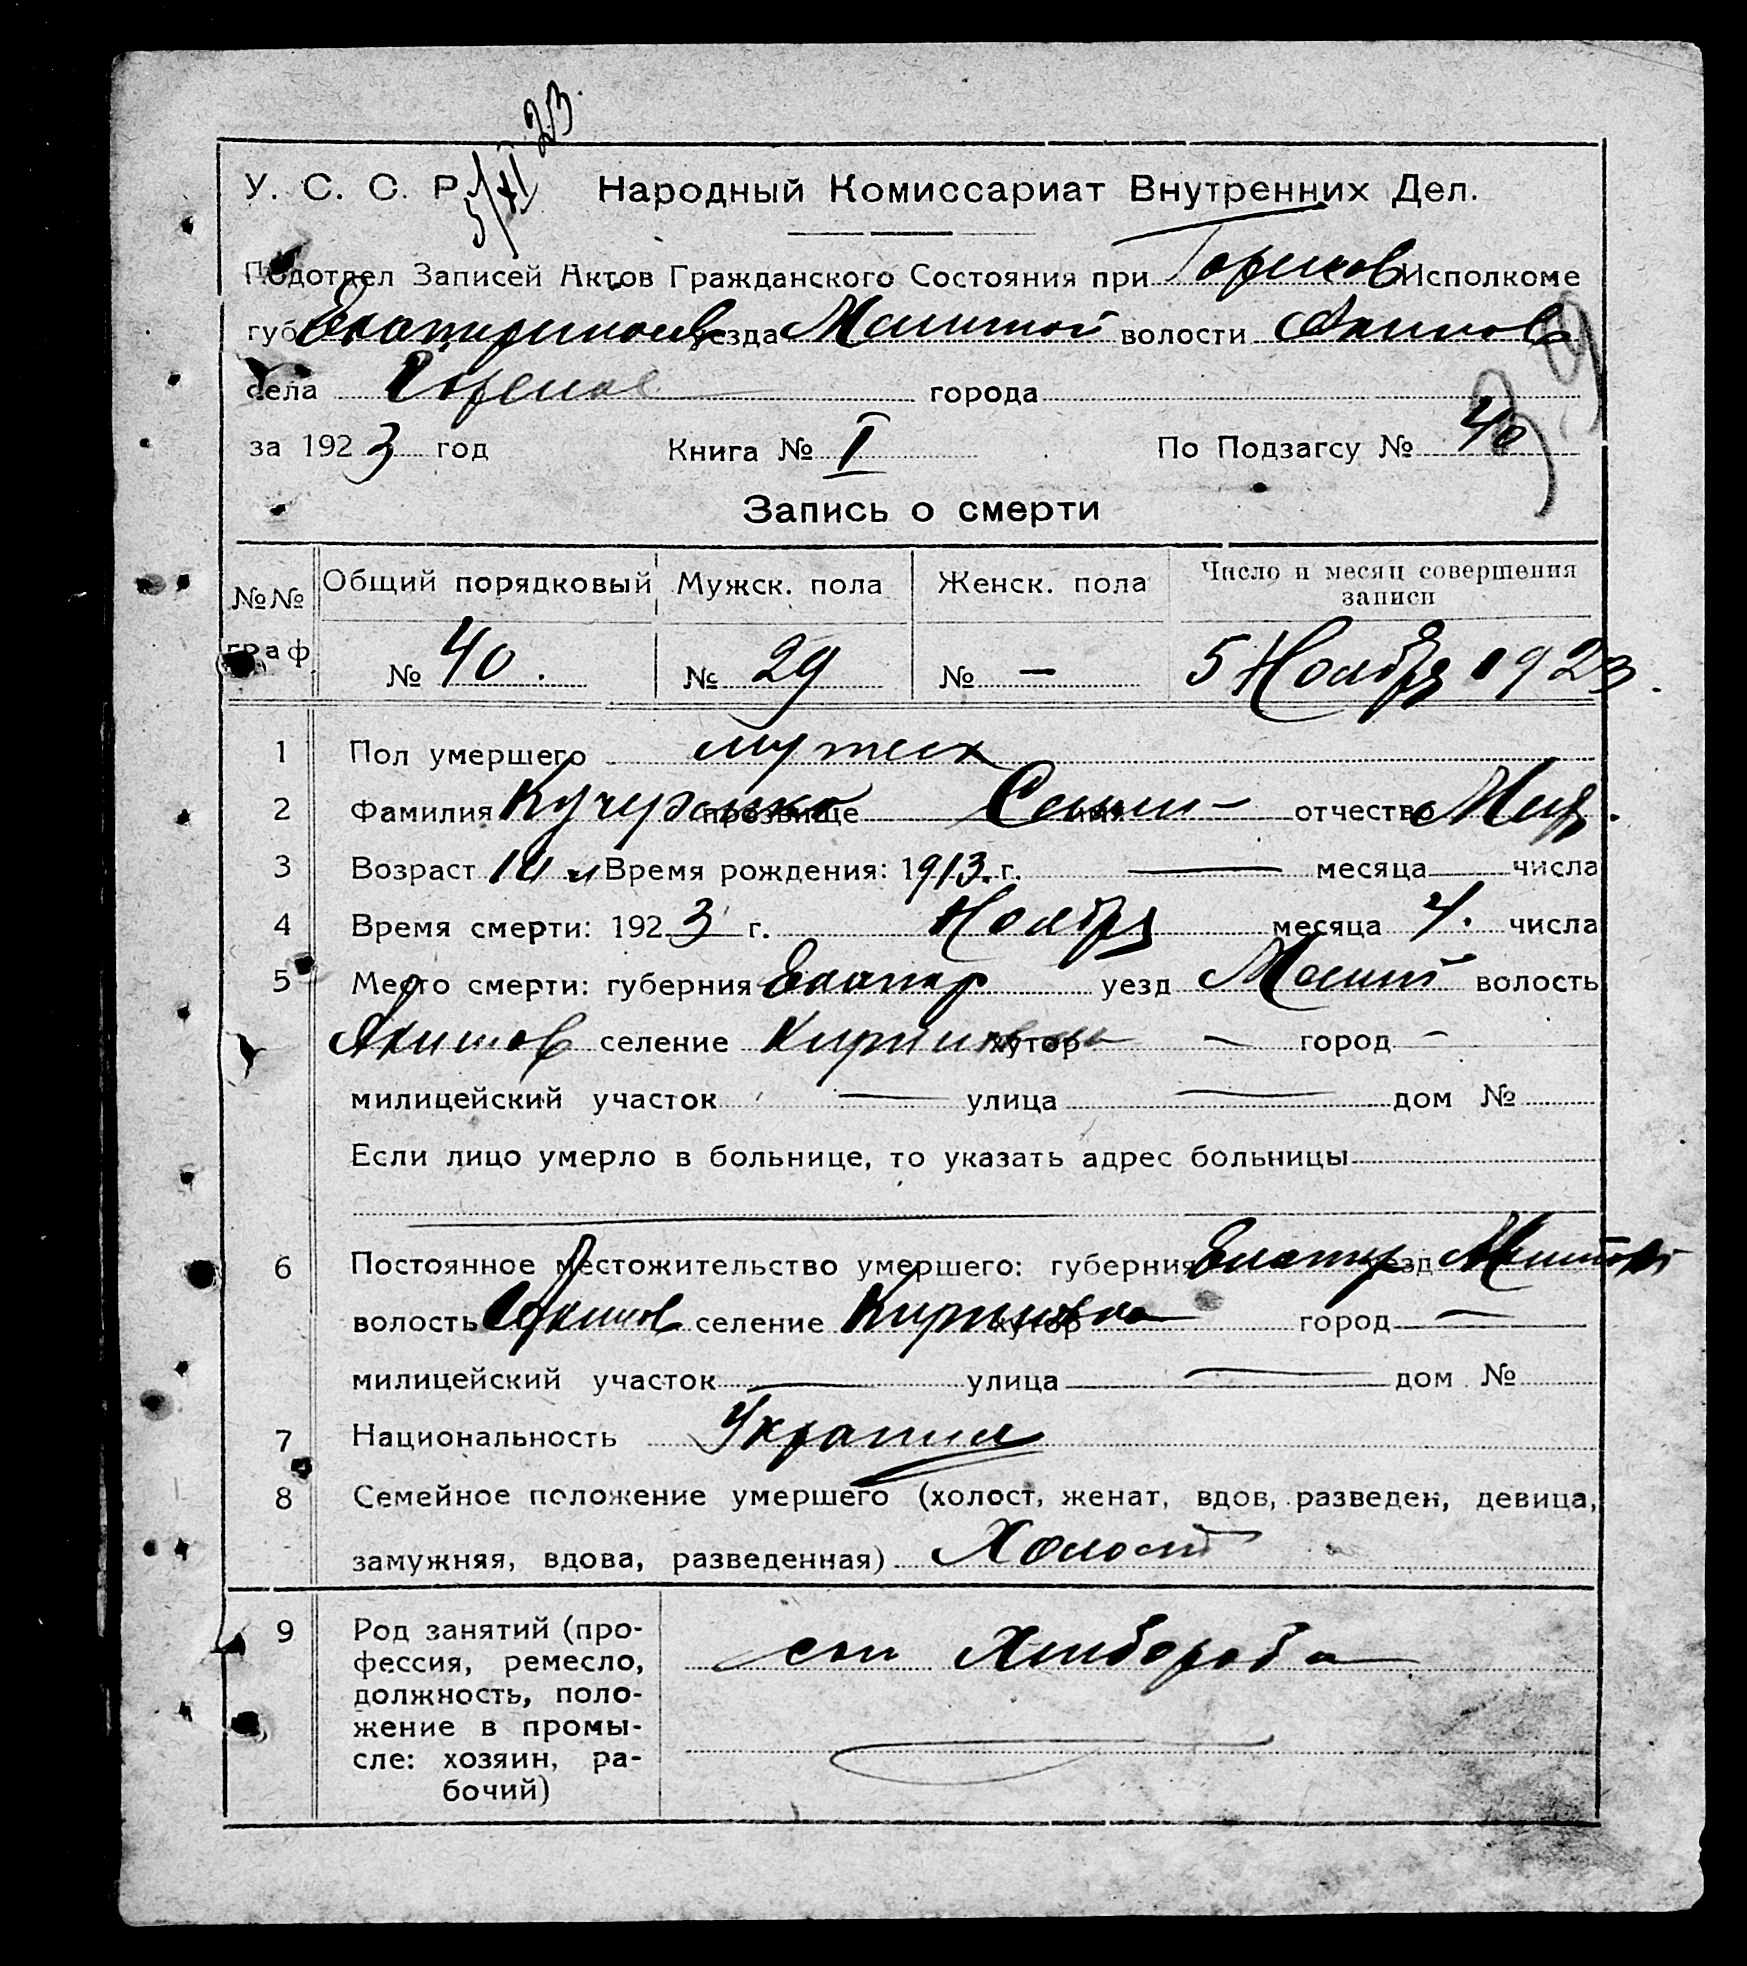 5/XI 23
У. С. С. Р. Народный Комиссариат Внутренних Дел.
Подотдел Записей Актов Гражданского Состояния при Исполкоме
губ. Екатеринослав уезда Мелитой волости Акимов
села города
за 1923 год Книга № I По Подзагсу № 40
39
Запись о смерти
№№ граф Общий порядковый Мужск. пола Женск. пола Число и месяц совершения записи
№ 40. № 29 № — 5 Ноября 1923.
1 Пол умершего мужеск
2 Фамилия Кучеренко прозвище имя Семен — отчество
3 Возраст 10 л Время рождения: 1913. г. — месяца числа
4 Время смерти: 1923 г. Ноября месяца 4. числа
5 Место смерти: губерния Екатер уезд Мелит волость
Якимов селение Кирпиловка хутор — город —
милицейский участок — улица — дом №
Если лицо умерло в больнице, то указать адрес больницы
6 Постоянное местожительство умершего: губерния Екатер уезд Мелитоп
волость Якимов селение хутор город —
милицейский участок — улица — дом №
7 Национальность Украинец
8 Семейное положение умершего (холост, женат, вдов, разведен, девица,
замужняя, вдова, разведенная) Холост
9 Род занятий (про-
фессия, ремесло,
должность, поло-
жение в промы-
сле: хозяин, ра-
бочий)
сын Хлибороба